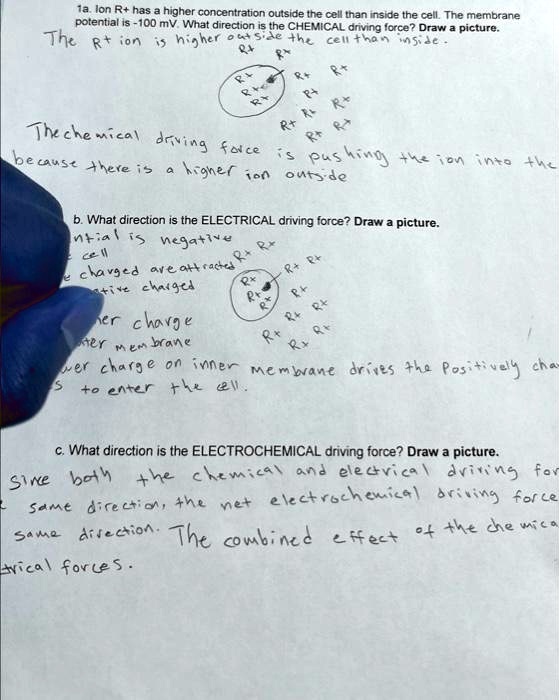 1a. Ion R+ has a higher concentration outside the cell than inside the cell. The membrane
potential is -100 mV. What direction is the CHEMICAL driving force? Draw a picture.
The R+ ion is higher outside the cell than inside.
R+ R+
R+ R+ R+
R+ R+
R+ R+ R+
R+ R+
R+
The chemical driving force is pushing the ion into the
because there is a higher ion outside
b. What direction is the ELECTRICAL driving force? Draw a picture.
ntial is negative
cell R+ R+
charged are attracted R+ R+
ative charged R+ R+
R+ R+
er charge R+ R+
membrane R+ R+
R+
er charge on inner membrane drives the positively cha
s to enter the cell.
c. What direction is the ELECTROCHEMICAL driving force? Draw a picture.
Since both the chemical and electrical driving for
same direction, the net electrochemical driving force
same direction. The combined effect of the chemica
trical forces.